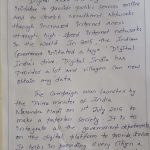 Digital India is an
initiative to provide public services online
and to
through increased Internet access
through high-speed Internet networks
to the world. In 2015, the Indian
government initiated a huge "Digital
India's drive. Digital India has
provided a lot and villagers can now
obtain any data.
The Campaign was launched by
the Prime Minister of India,
Narendra Modi on 1st July 2015 to
make a better society. It is to
integrate all the government departments
on the digital platform to provide services
It helps in providing every citizen a